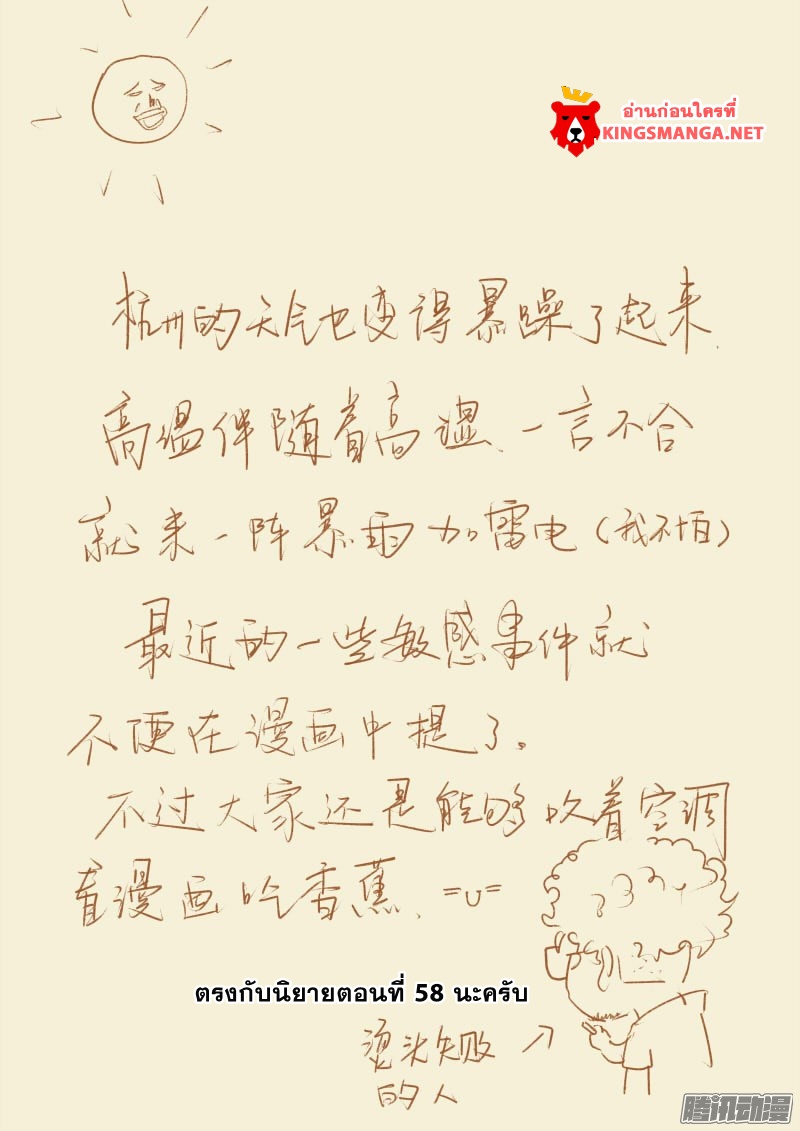 อ่านก่อนใครที่
KINGSMANGA.NET
杭州的天气也变得暴躁了起来.
高温伴随着高湿、一言不合
就来一阵暴雨加雷电(我不怕)
最近的一些敏感事件就
不便在漫画中提了。
不过大家还是能够吹着空调
看漫画吃香蕉、=u=
ตรงกับนิยายตอนที่ 58 นะครับ
烫头失败
的人
腾讯动漫